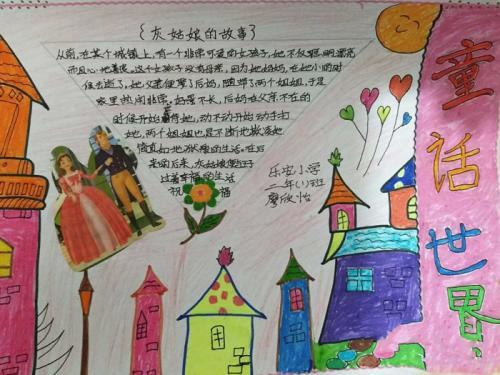 {灰姑娘的故事}
从前,在某个城镇上,有一个非常可爱的女孩子,她不仅聪明漂亮
而且心地善良,这个女孩子没有母亲,因为她妈妈,在她小的时
候去逝了,她父亲便娶了后妈,随
两个姐姐,于是
家里热闹非常,好景不长,后妈在父亲不在的
时候开始
她,动不动开始动手打
她,两个姐姐也是不断地欺凌她
的生活。在后
来的后来,灰姑娘
过着幸福的生活
祝
福
乐安小学
二年(1)班
廖欣怡
童话世界